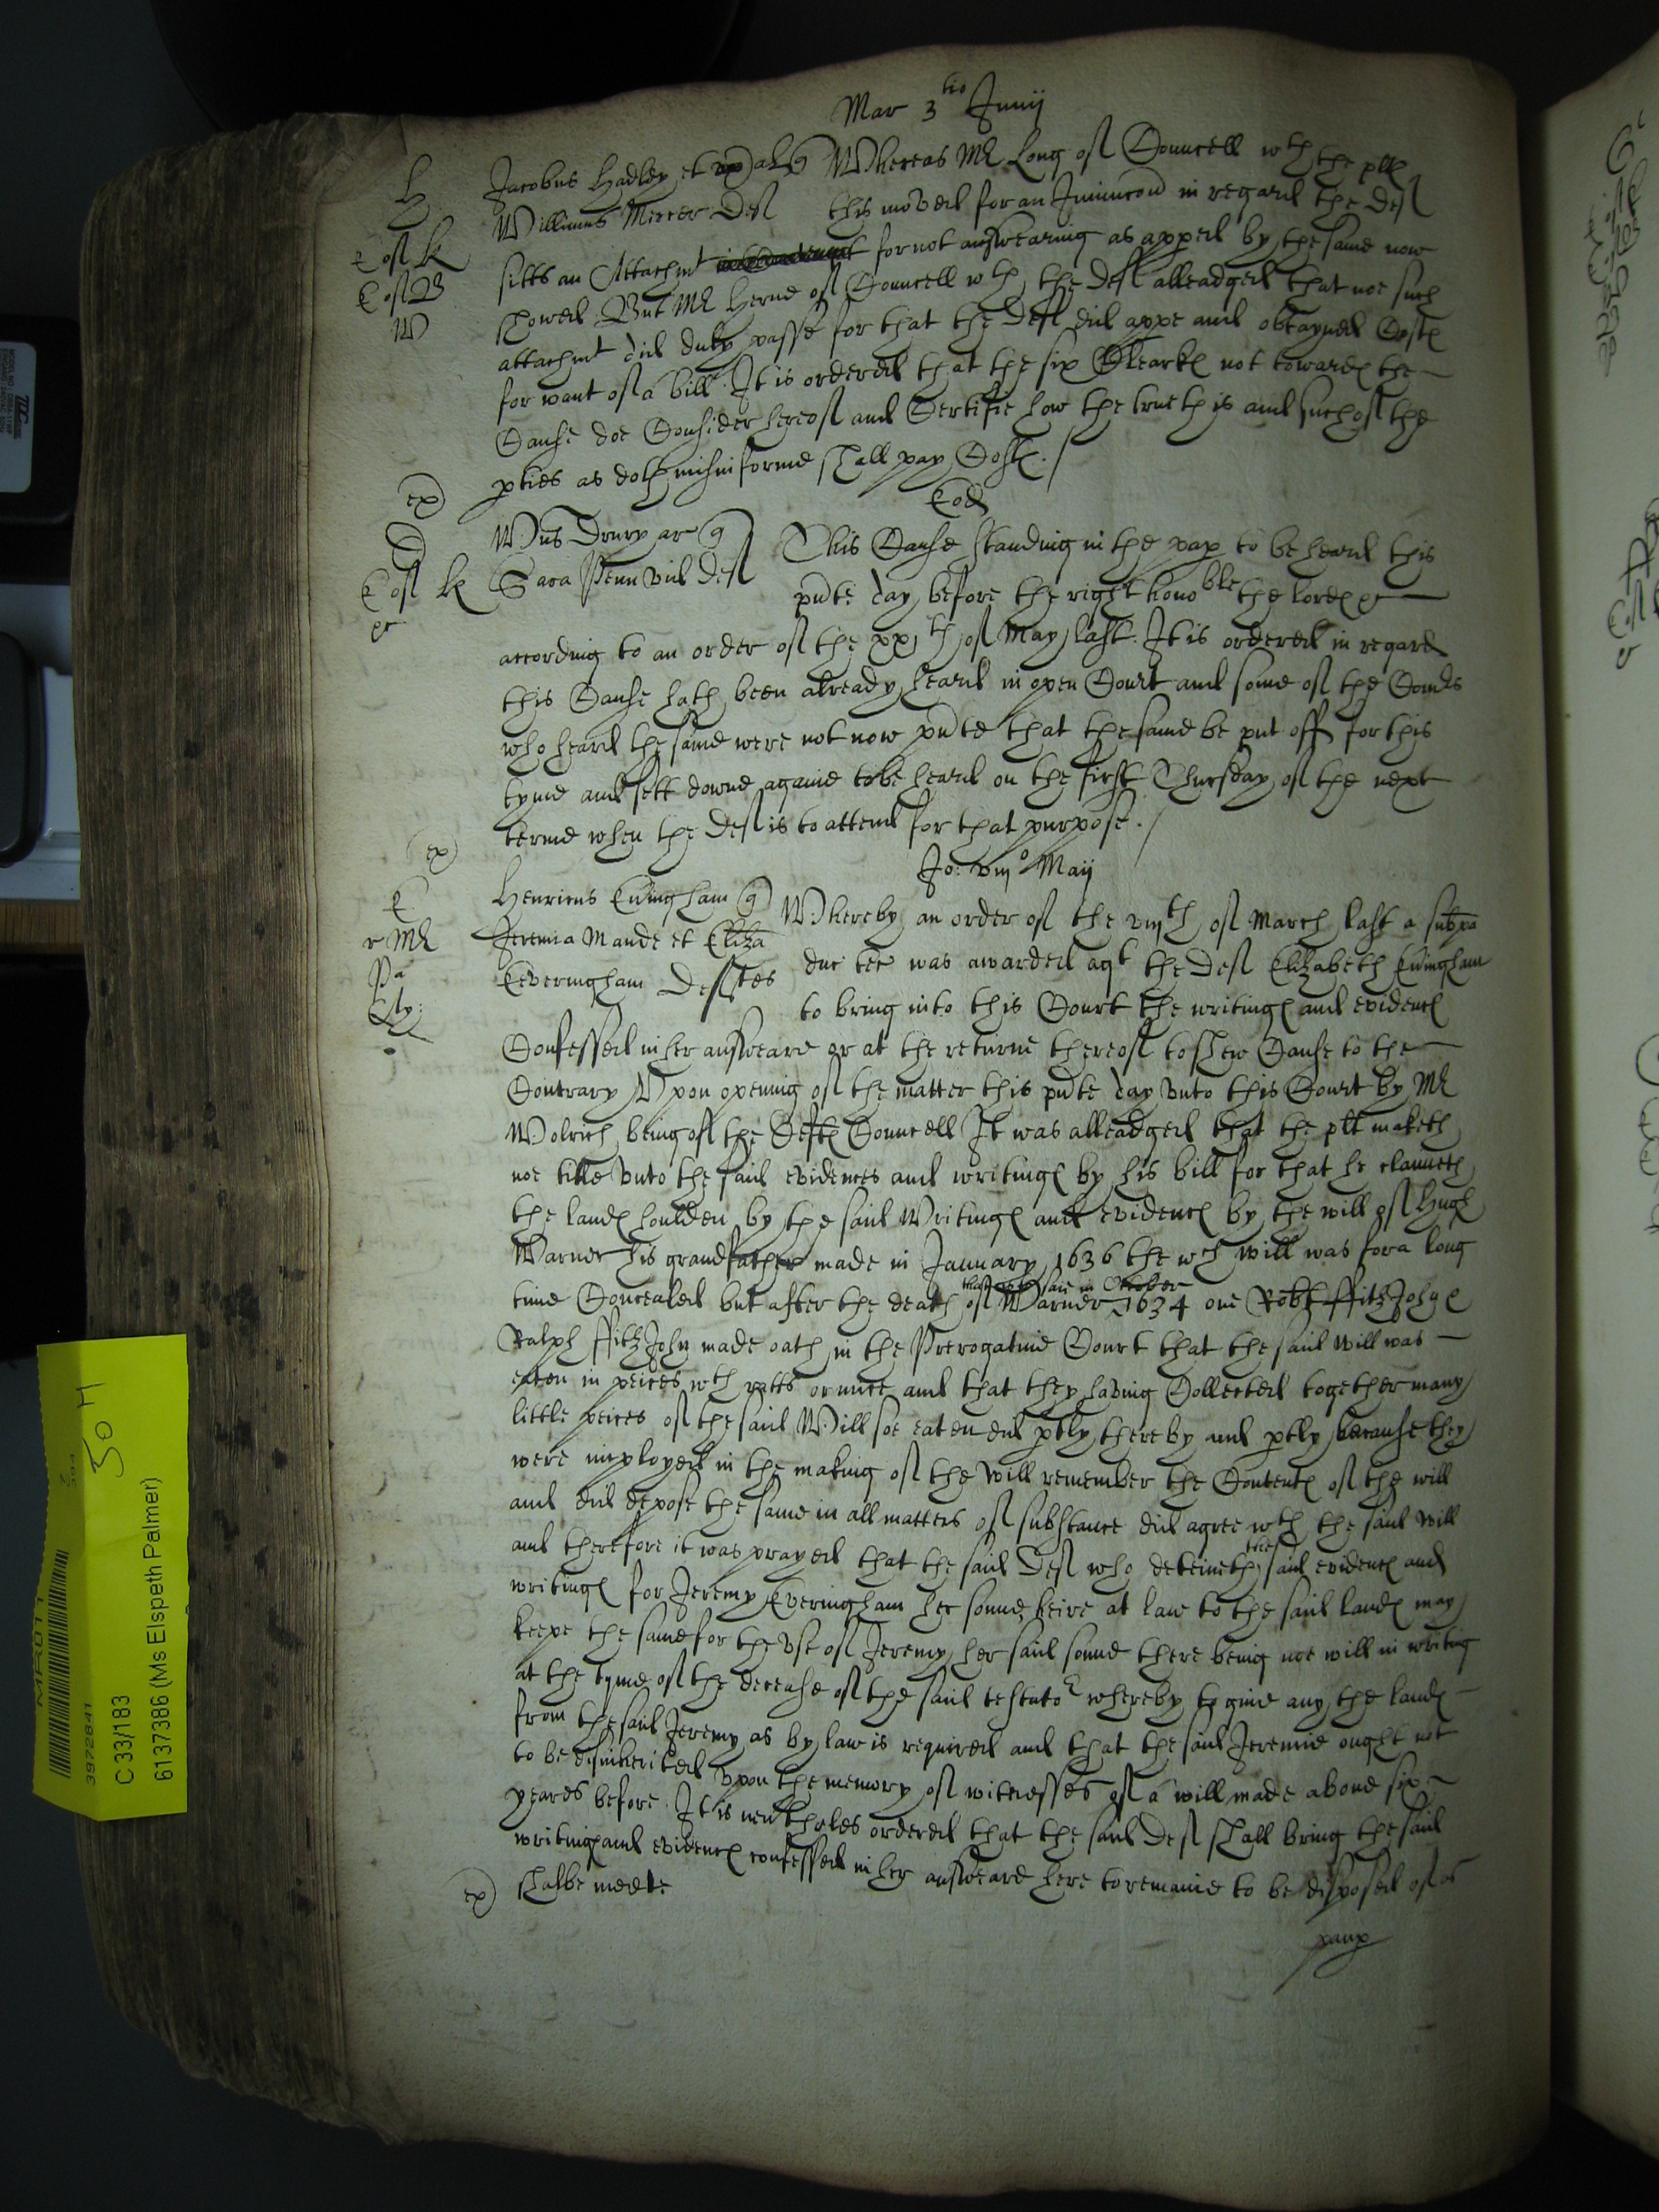 Mar 3tio Junij
H Jacobus Hadley et al q Whereas Mr Long of Councell wth the plts
Willimus Mercer Def this moved for an Iniunccon in regard the Def
E of K sitts an Attachmt for not answearing as appeed by the same now
E of B showed. But Mr Herne of Councell wth the Def alleadged that noe such
W attachmt did duly passe for that the Def did appe and obtayned Costs
for want of a bill. It is ordered that the six Clearks not towards the
Cause doe Consider hereof and Certifie how the trueth is and such of the
pties as doth misinforme shall pay Costs./
ex
Eod
D Wms Drury ar q This Cause standing in the pap to be heard this
E of K Sara Penn vid Def pnte day before the right honoble the lords &c
according to an order of the xxth of May last. It is ordered in regard
this Cause hath been already heard in open Court and some of the Comrs
who heard the same were not now pnte that the same be put off for this
tyme and sett downe againe to be heard on the first Thursday of the next
terme when the Def is to attend for that purpose./
ex
Jo: viijo Maij
E Henricus Evingham q Whereby an order of the viijth of March last a subpa
r Mr Jeremia Maude et Eliza duc tec was awarded agt the Def Elizabeth Evingham
Pa Everingham Deftes to bring into this Court the writings and evidencs
Confessed in her answeare or at the returne thereof to shew Cause to the
Contrary Upon opening of the matter this pnte day unto this Court by Mr
Wolrich being of the Defts Councell It was alleadged that the plt maketh
noe title unto the said evidences and writings by his bill for that he claimeth
the lands houlden by the said Writings and evidencs by the will of Hugh
Warner his grandfather made in January 1636 the wch will was for a long
that is to saie in October
time Concealed but after the death of Warner 1634 one Robt ffitzJohn &
Ralph ffitzJohn made oath in the Prerogative Court that the said will was
eaten in peices wth ratts or mice and that they having Collected together many
little peices of the said Will soe eaten did ptly thereby and ptly because they
were imployed in the making of the will remember the Contents of the will
and did depose the same in all matters of substance did agree wth the said will
and therefore it was prayed that the said Def who deteineth thes said evidencs and
writings for Jeremy Everingham her sonne heire at law to the said lands may
keepe the same for the use of Jeremy her said sonne there being noe will in writing
at the tyme of the decease of the said testator whereby to give any the lands
from the said Jeremy as by law is required and that the said Jeremie ought not
to be disinherited upon the memory of witnesses of a will made above six
yeares before. It is nevtheles ordered that the said Def shall bring the said
writings and evidencs confessed in her answeare here to remaine to be disposed of as
ex shalbe meete
paup
MR011
3972841
C 33/183
6137386 (Ms Elspeth Palmer)
50 H